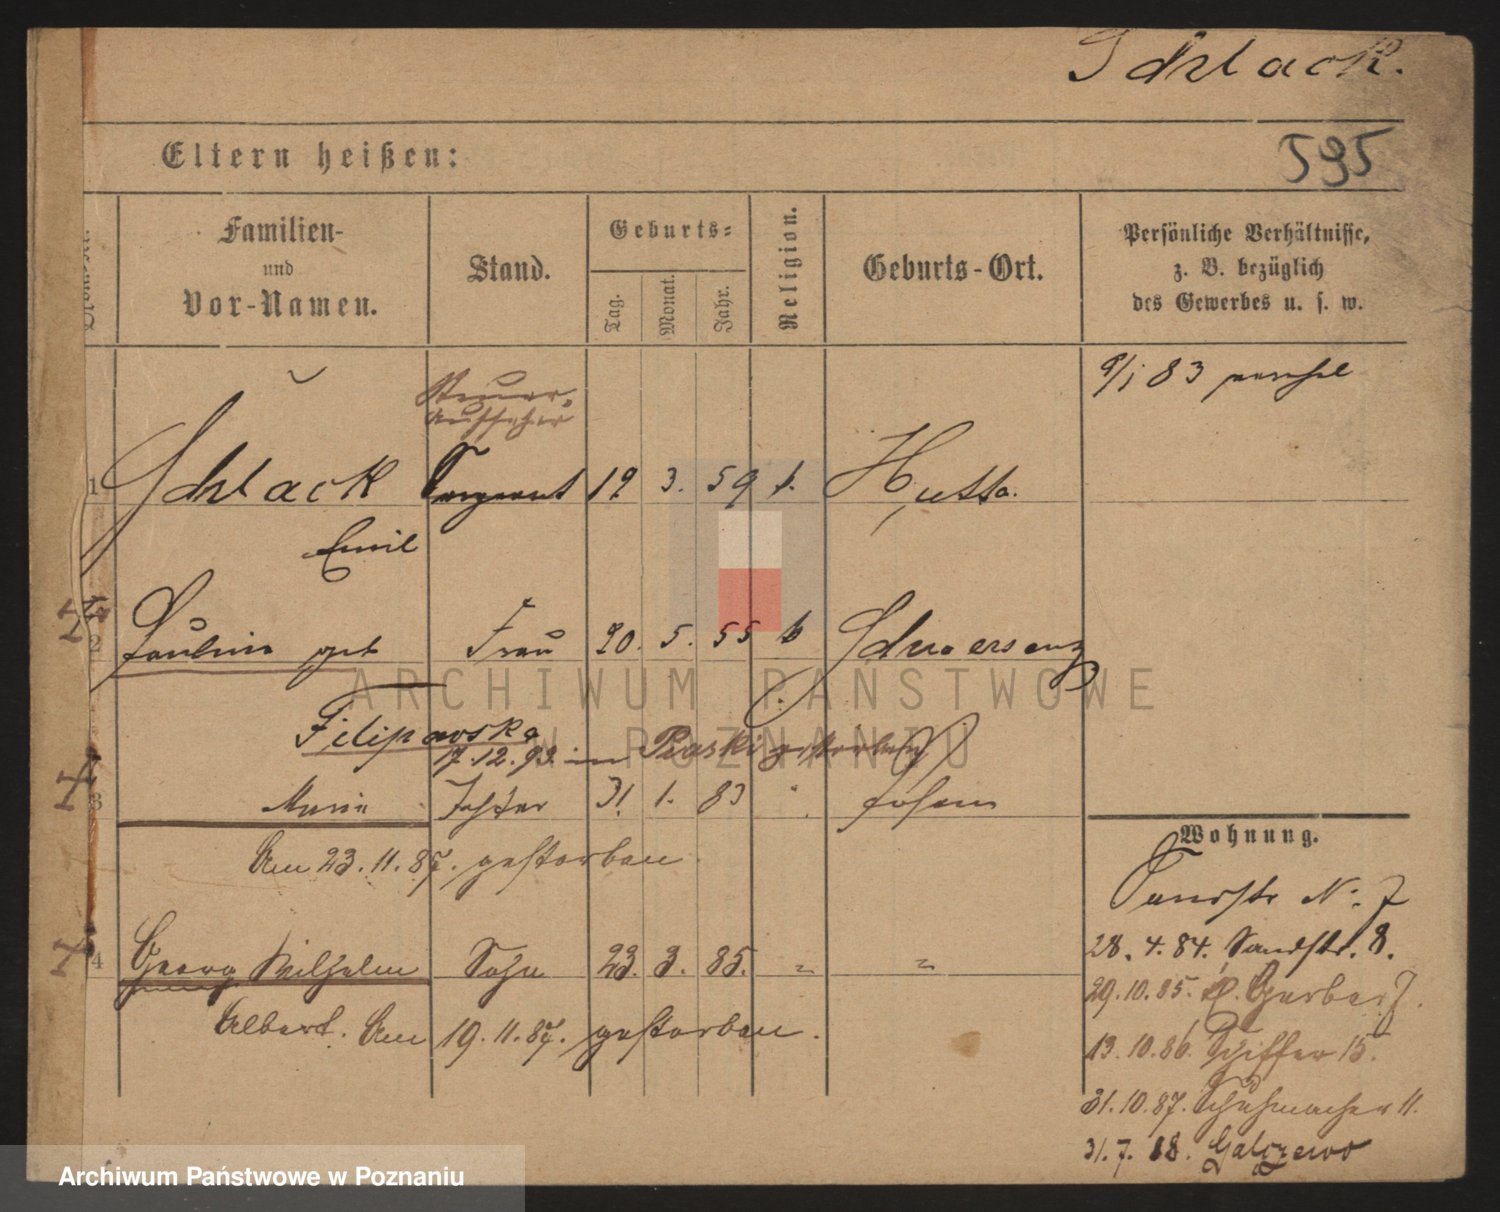 Schlack.
595
Eltern heißen:
Familien-
und
Vor-Namen.
Stand.
Geburts-
Tag.
Monat.
Jahr.
Religion.
Geburts-Ort.
Persönliche Verhältnisse,
z. B. bezüglich
des Gewerbes u. s. w.
83
Steuer-
Aufseher
1 Schlack Sergeant 19 3. 59 k. Hutta.
Emil
2 Pauline geb Frau 20. 5. 55 k Schwersenz
Filipowska
17.12.93. in Piaski gestorben
3 Marie Tochter 31. 1. 83 " Posen
Am 23.11.87. gestorben
4 Georg Wilhelm Sohn 23. 3. 85. " "
Albert. Am 19.11.87. gestorben.
Wohnung.
Sandstr N. 7
28.4.84. Sandstr. 8.
29.10.85. Gerber 7.
13.10.86. Schiffer 15.
31.10.87. Schuhmacher 11.
31.7.88. Galczewo
ARCHIWUM PAŃSTWOWE
W POZNANIU
Archiwum Państwowe w Poznaniu